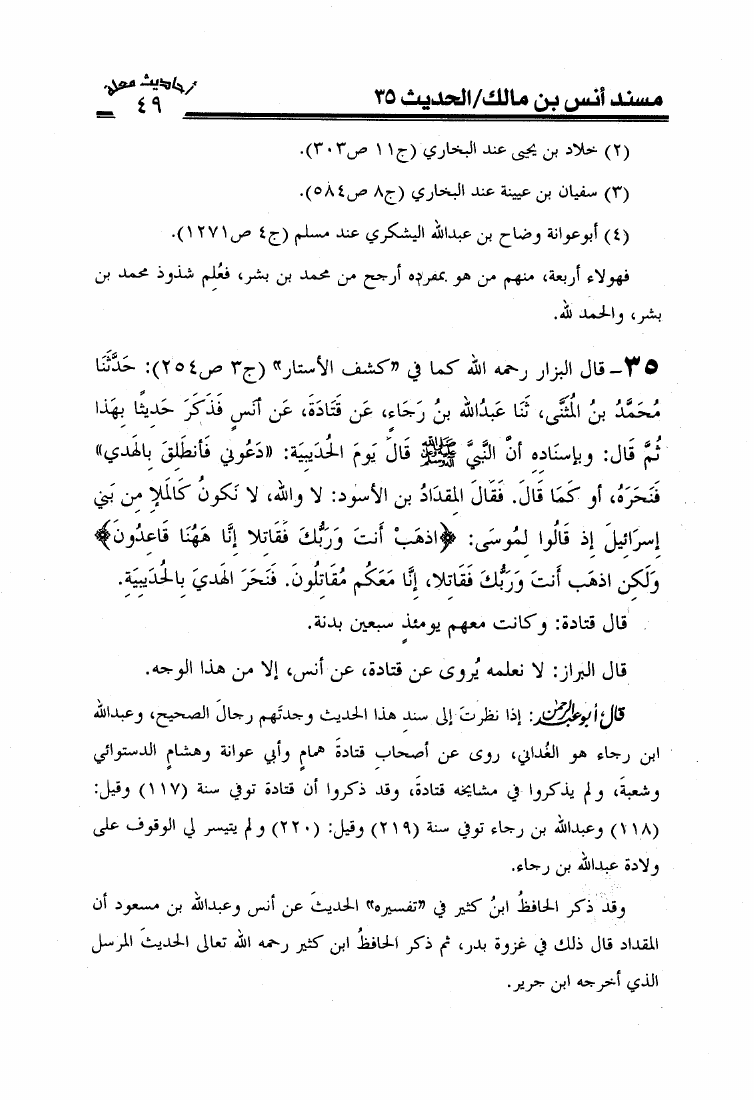 مسند أنس بن مالك/الحديث ٣٥
أحاديث معلة
٤٩
(٢) خلاد بن يحيى عند البخاري (ج١١ ص٣٠٣).
(٣) سفيان بن عيينة عند البخاري (ج٨ ص٥٨٤).
(٤) أبوعوانة وضاح بن عبدالله اليشكري عند مسلم (ج٤ ص١٢٧١).
فهولاء أربعة، منهم من هو بمفرده أرجح من محمد بن بشر، فعُلم شذوذ محمد بن
بشر، والحمد لله.
٣٥- قال البزار رحمه الله كما في «كشف الأستار» (ج٣ ص٢٥٤): حَدَّثَنَا
مُحَمَّدُ بنُ المُثَنَّى، ثَنَا عَبدُالله بنُ رَجَاءٍ، عَن قَتَادَةَ، عَن أَنَسٍ فَذَكَرَ حَدِيثًا بِهَذَا
ثُمَّ قَال: وبِإسنَادِهِ أنَّ النَّبِيَّ ﷺ قَالَ يَومَ الحُدَيبِيَة: «دَعُوني فَأَنطَلِقَ بِالهَدي»
فَنَحَرَهُ، أو كَمَا قَالَ. فَقَالَ المِقدَادُ بن الأسود: لا والله، لا نَكونُ كَالملإ مِن بَنِي
إسرَائِيلَ إذ قَالُوا لمُوسَى: ﴿اذهَبْ أنتَ وَرَبُّكَ فَقَاتلا إنَّا هَهُنَا قَاعِدُونَ﴾
وَلَكِن اذهَب أَنتَ وَرَبُّكَ فَقَاتلا، إنَّا مَعَكُم مُقَاتلُونَ. فَنَحَرَ الهَديَ بِالحُدَيبِيَةِ.
قال قتادة: وكانت معهم يومئذٍ سبعين بدنة.
قال البراز: لا نعلمه يُروى عن قتادة، عن أنس، إلا من هذا الوجه.
قال أبوعبدالرحمن: إذا نظرتَ إلى سندِ هذا الحديث وجدتَهم رجالَ الصحيح، وعبدالله
ابن رجاء هو الغُداني، روى عن أصحابِ قتادةَ همامٍ وأبي عوانة وهشام الدستوائي
وشعبةَ، ولم يذكروا في مشايخه قتادةَ، وقد ذكروا أن قتادة توفي سنة (١١٧) وقيل:
(١١٨) وعبدالله بن رجاء توفي سنة (٢١٩) وقيل: (٢٢٠) ولم يتيسر لي الوقوف على
ولادة عبدالله بن رجاء.
وقد ذكر الحافظُ ابنُ كثير في «تفسيره» الحديثَ عن أنس وعبدالله بن مسعود أن
المقداد قال ذلك في غزوة بدر، ثم ذكر الحافظُ ابن كثير رحمه الله تعالى الحديثَ المرسل
الذي أخرجه ابن جرير.